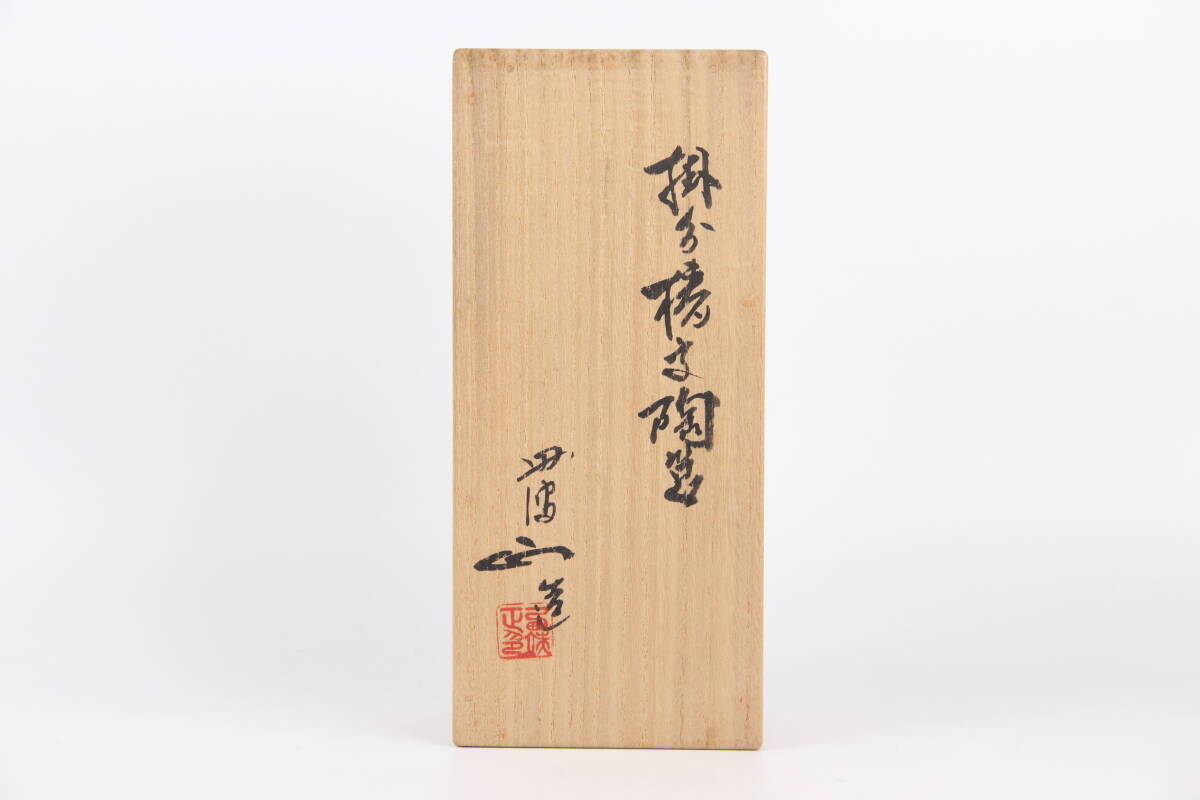 掛分椿文陶筥
丹波 山 造